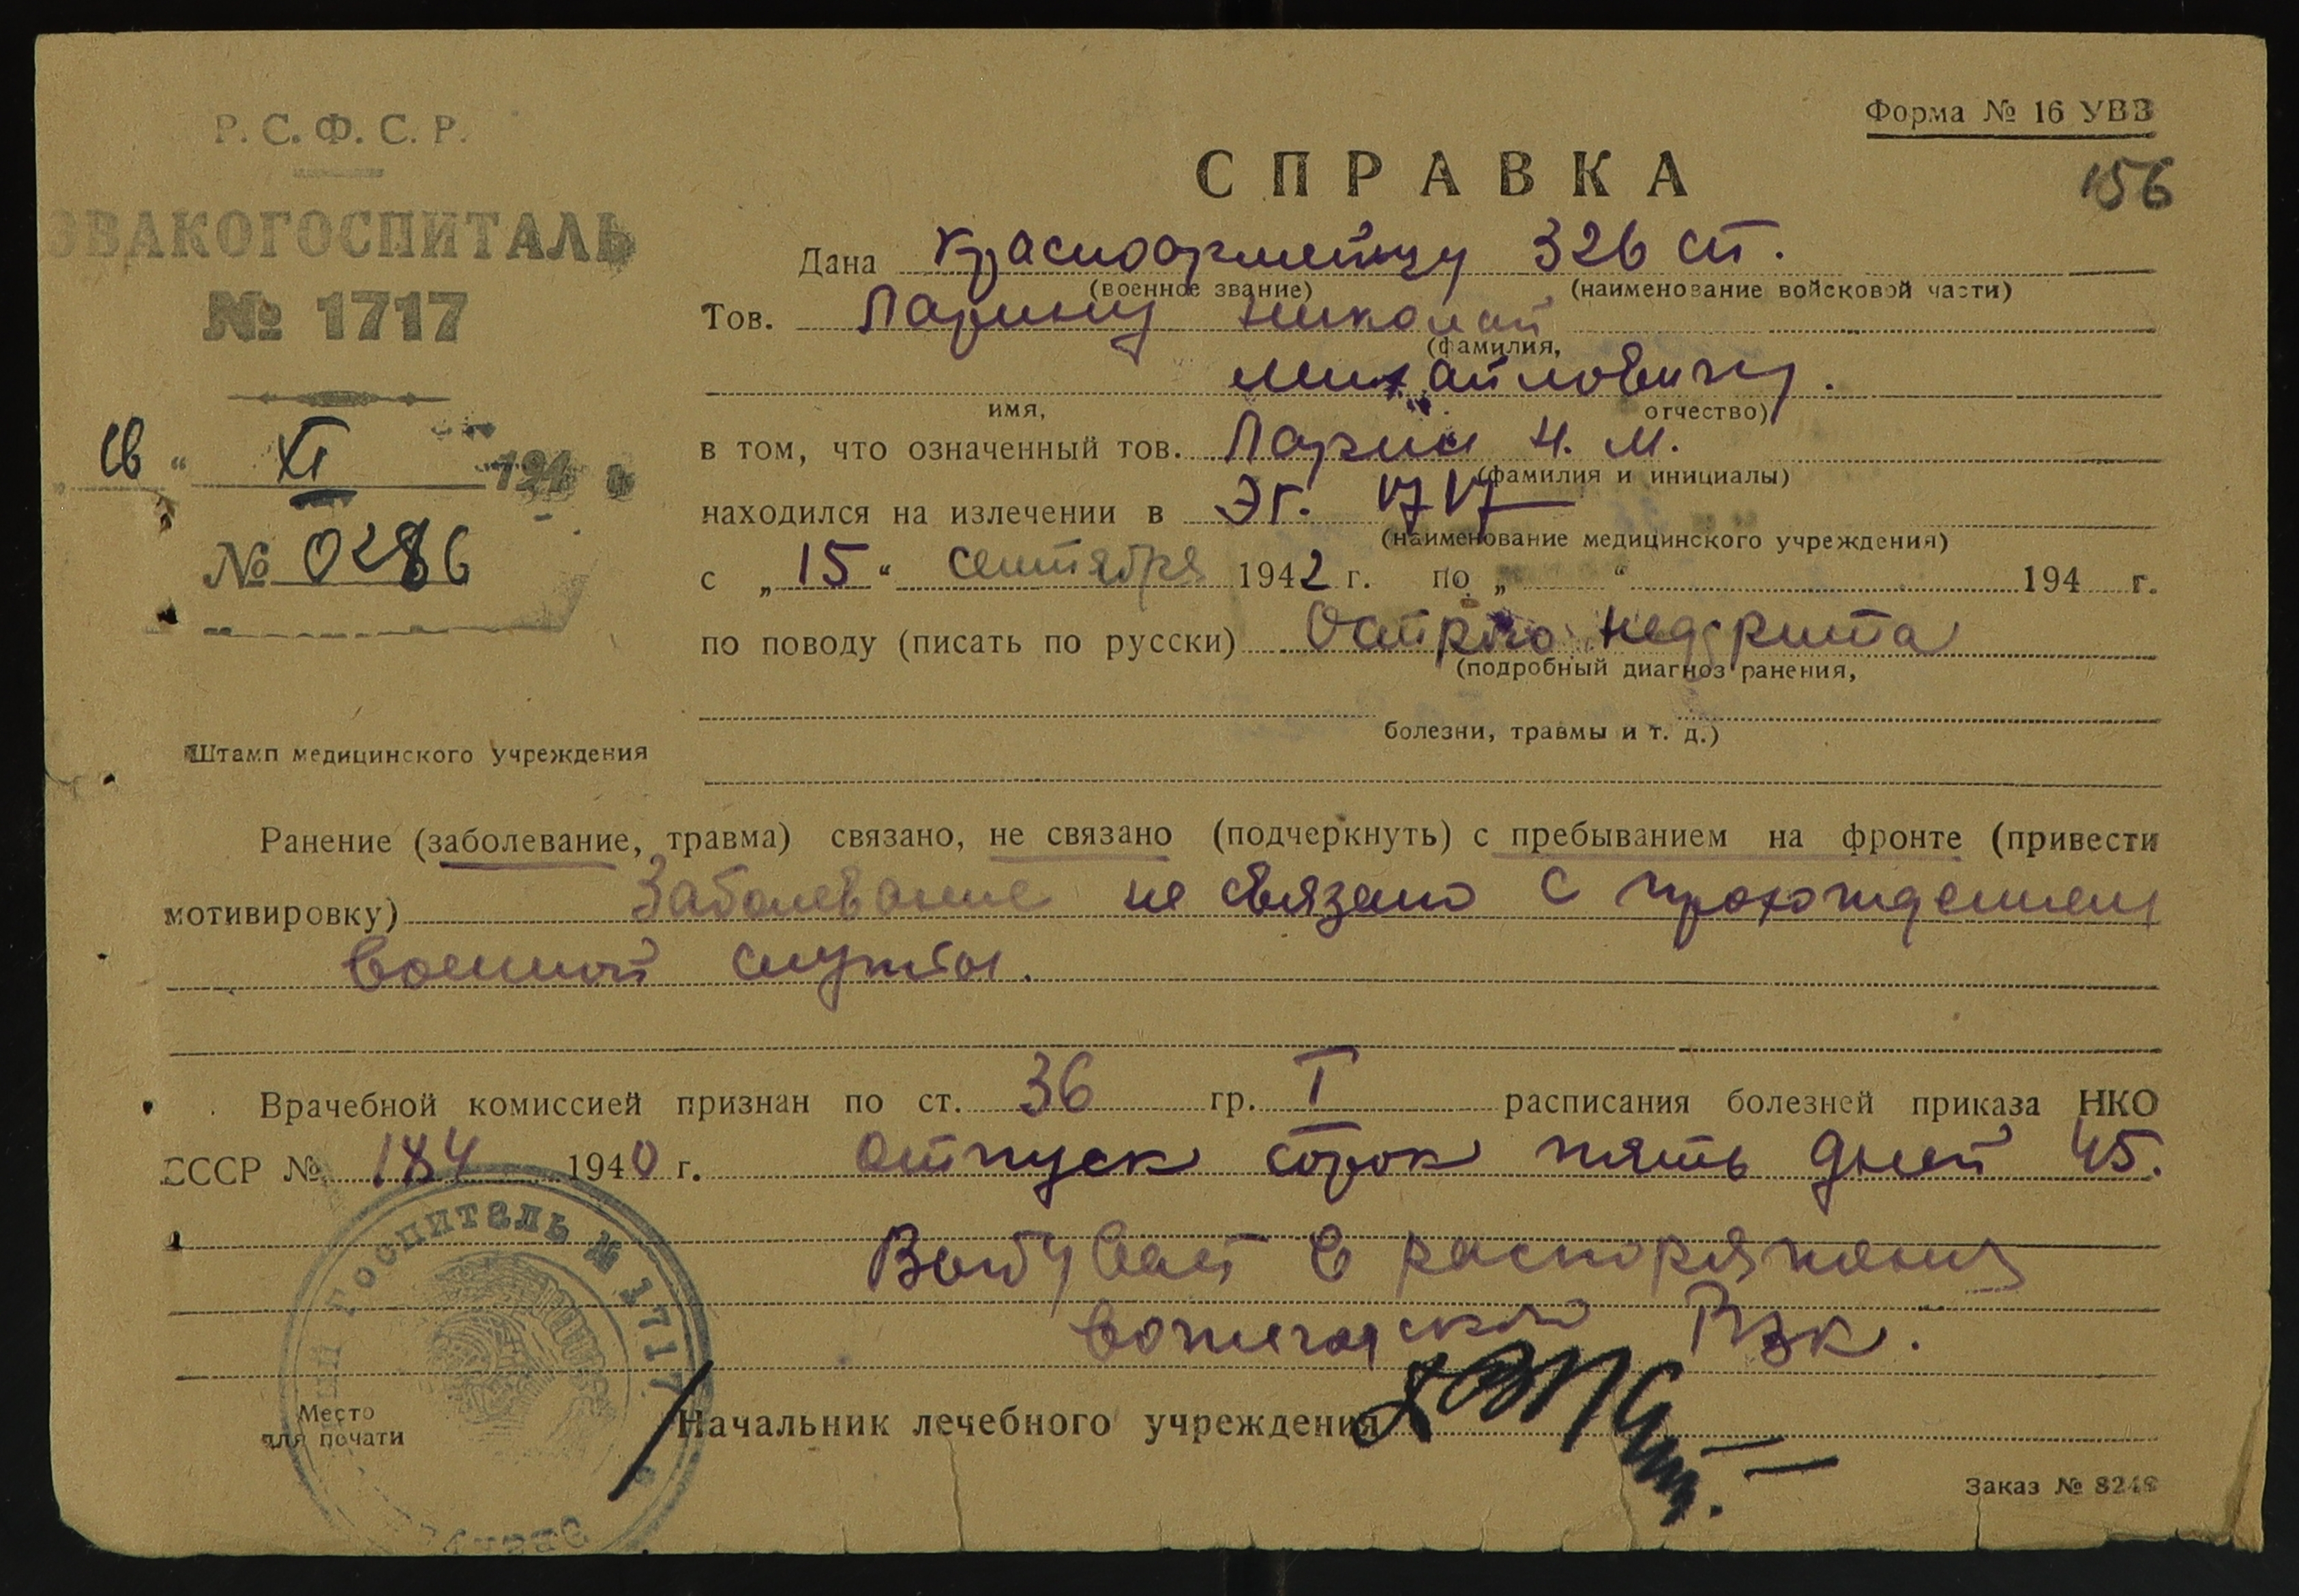 Р. С. Ф. С. Р.
ЭВАКОГОСПИТАЛЬ
№ 1717
„16“ XI 194 г
№ 0286
Штамп медицинского учреждения
Форма № 16 УВЗ
156
СПРАВКА
Дана Красноармейцу 326 сп.
(военное звание) (наименование войсковой части)
Тов. Ларину Николай
(фамилия,
Михайловичу.
имя, отчество)
в том, что означенный тов. Ларин Н. М.
(фамилия и инициалы)
находился на излечении в ЭГ. 1717
(наименование медицинского учреждения)
с „15“ сентября 1942 г. по „ “ 194 г.
по поводу (писать по русски) Острого нефрита
(подробный диагноз ранения,
болезни, травмы и т. д.)
Ранение (заболевание, травма) связано, не связано (подчеркнуть) с пребыванием на фронте (привести
мотивировку) Заболевание не связано с прохождением
военной службы.
Врачебной комиссией признан по ст. 36 гр. I расписания болезней приказа НКО
СССР № 184 1940 г. отпуск сорок пять дней 45.
Выбувает в распоряжения
Вожегодского РВК.
Госпиталь № 1717
Место
для печати
Начальник лечебного учреждения
Заказ № 8248